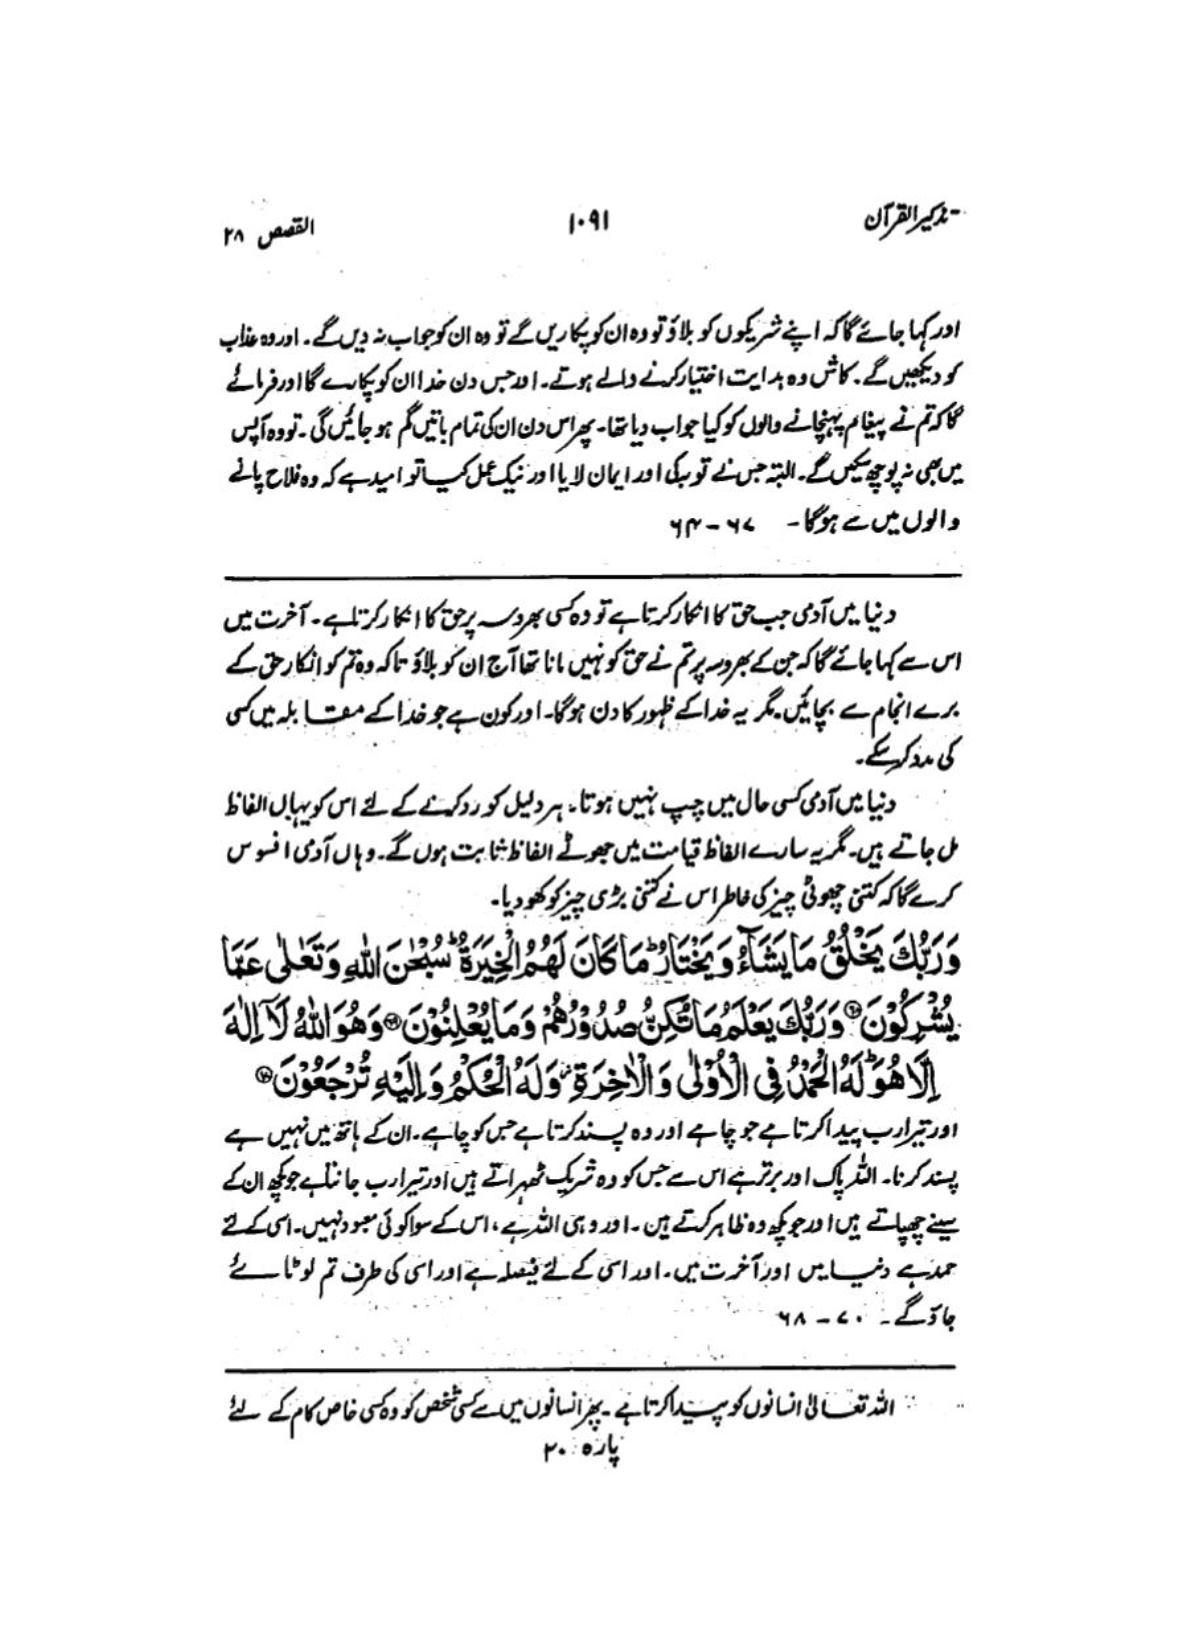 تذکیر القرآن ۱۰۹۱ القصص ۲۸
اور کہا جائے گا کہ اپنے شریکوں کو بلاؤ تو وہ ان کو پکاریں گے تو وہ ان کو جواب نہ دیں گے۔ اور وہ عذاب
کو دیکھیں گے۔ کاش وہ ہدایت اختیار کرنے والے ہوتے۔ اور جس دن خدا ان کو پکارے گا اور فرمائے
گا کہ تم نے پیغام پہنچانے والوں کو کیا جواب دیا تھا۔ پھر اس دن ان کی تمام باتیں گم ہو جائیں گی۔ تو وہ آپس
میں بھی نہ پوچھ سکیں گے۔ البتہ جس نے توبہ کی اور ایمان لایا اور نیک عمل کیا تو امید ہے کہ وہ فلاح پانے
والوں میں سے ہوگا۔ ۶۷ - ۶۴
دنیا میں آدمی جب حق کا انکار کرتا ہے تو وہ کسی بھروسہ پر حق کا انکار کرتا ہے۔ آخرت میں
اس سے کہا جائے گا کہ جن کے بھروسہ پر تم نے حق کو نہیں مانا تھا آج ان کو بلاؤ تاکہ وہ تم کو انکار حق کے
برے انجام سے بچائیں۔ مگر یہ خدا کے ظہور کا دن ہوگا۔ اور کون ہے جو خدا کے مقابلہ میں کسی
کی مدد کر سکے۔
دنیا میں آدمی کسی حال میں چپ نہیں ہوتا۔ ہر دلیل کو رد کرنے کے لئے اس کو یہاں الفاظ
مل جاتے ہیں۔ مگر یہ سارے الفاظ قیامت میں جھوٹے الفاظ ثابت ہوں گے۔ وہاں آدمی افسوس
کرے گا کہ کتنی چھوٹی چیز کی خاطر اس نے کتنی بڑی چیز کو کھو دیا۔
وَرَبُّكَ يَخْلُقُ مَا يَشَآءُ وَيَخْتَارُ ؕ مَا كَانَ لَهُمُ الْخِيَرَةُ ؕ سُبْحٰنَ اللّٰهِ وَتَعٰلٰى عَمَّا
يُشْرِكُوْنَ ۝۶۸ وَرَبُّكَ يَعْلَمُ مَا تُكِنُّ صُدُوْرُهُمْ وَمَا يُعْلِنُوْنَ ۝۶۹ وَهُوَ اللّٰهُ لَآ اِلٰهَ
اِلَّا هُوَ ؕ لَهُ الْحَمْدُ فِى الْاُوْلٰى وَالْاٰخِرَةِ ۫ وَلَهُ الْحُكْمُ وَاِلَيْهِ تُرْجَعُوْنَ ۝۷۰
اور تیرا رب پیدا کرتا ہے جو چاہے اور وہ پسند کرتا ہے جس کو چاہے۔ ان کے ہاتھ میں نہیں ہے
پسند کرنا۔ اللہ پاک اور برتر ہے اس سے جس کو وہ شریک ٹھہراتے ہیں اور تیرا رب جانتا ہے جو کچھ ان کے
سینے چھپاتے ہیں اور جو کچھ وہ ظاہر کرتے ہیں۔ اور وہی اللہ ہے، اس کے سوا کوئی معبود نہیں۔ اسی کے لئے
حمد ہے دنیا میں اور آخرت میں۔ اور اسی کے لئے فیصلہ ہے اور اسی کی طرف تم لوٹائے
جاؤ گے۔ ۷۰ - ۶۸
اللہ تعالیٰ انسانوں کو پیدا کرتا ہے۔ پھر انسانوں میں سے کسی شخص کو وہ کسی خاص کام کے لئے
پارہ ۲۰